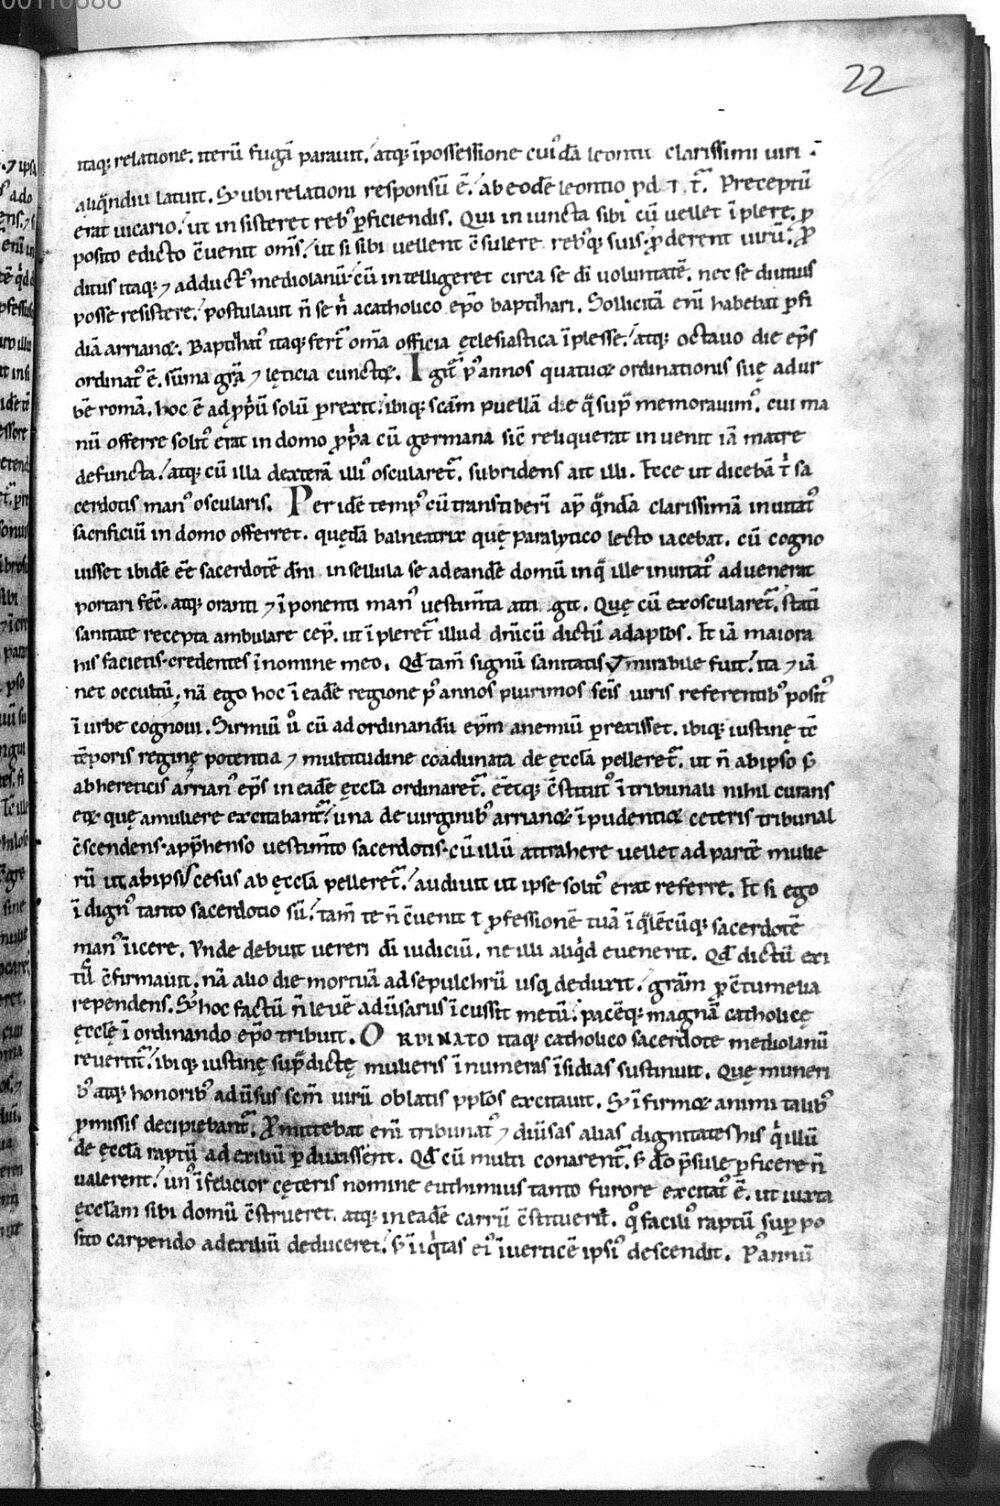 22
itaq; relatione. iterū fugā parauit. atq; īpossessione cuiꝰdā leontii clarissimi uiri
aliq̄ndiu latuit. Sꝫ ubi relationi responsū ē. ab eodē leontio ꝑd. Preceptū
erat uicario. ut insisteret rebꝰ ꝑficiendis. Qui iniuncta sibi cū uellet īplere. ꝓ
posito edicto ꝯuenit om̄s. ut si sibi uellent ꝯsulere rebꝰq; suis. ꝓderent uirū. Pro
ditus itaq; ⁊ adductꝰ mediolanū. cū intelligeret circa se dī uoluntatē. nec se diutius
posse resistere. postulauit n̄ se nı̄ a catholico ep̄o baptizari. Sollicitā eni habebat ꝑfi
diā arrianoꝝ. Baptizatꝰ itaq; fert̄ omīa officia ęclesiastica īplesse. atq; octauo die ep̄s
ordinatꝰ ē. sūma gr̄a ⁊ lęticia cunctoꝝ. Igit̄ pꝰ annos quatuor ordinationis suę ad ur
bē romā. hoc ē ad ꝓpriū solū ꝑrexit. ibiq; sc̄am puellā de q̄ supͣ memorauimꝰ. cui ma
nū offerre solitꝰ erat in domo ꝓpͥa cū germana sic̄ reliquerat inuenit iā matre
defuncta. atq; cū illa dexterā illiꝰ oscularet̄. subridens ait illi. Ecce ut dicebā t̄ sa
cerdotis manꝰ oscularis. Per idē tempꝰ cū trans tiberī ap̄ q̄ndā clarissimā inuitatꝰ
sacrificiū in domo offerret. quędā balneatrix quę paralytico lecto iacebat. cū cogno
uisset ibidē ēe sacerdotē dn̄i. in sellula se ad eandē domū in q̄ ille inuitatꝰ aduenerat
portari fec̄. atq; oranti ⁊ īponenti manꝰ uestim̄ta attigit. Quę cū exoscularet̄. statī
sanitate recepta ambulare cep̄. ut īpleret̄ illud dn̄icū dictū ad ap̄los. Et iā maiora
his facietis credentes ī nomine meo. Qđ tam̄ signū sanitatis ꝟ mirabile fuit. ita ⁊ iā
nec occultū. nā ego hoc ī eadē regione pꝰ annos plurimos sc̄is uiris referentibꝰ positꝰ
ī urbe cognoui. Sirmiū ů cū ad ordinandū ep̄m anemiū ꝑrexisset. ibiq; iustinę tc̄
tēporis reginę potentia ⁊ multitudine coadunata de ęccl̄a pelleret̄. ut n̄ ab ipso sꝫ
ab hereticis arrianꝰ ep̄s in eadē ęccl̄a ordinaret̄. ēetq; ꝯstitutꝰ ī tribunali nihil curans
eoꝝ quę a muliere excitabant̄. una de uirginibꝰ arrianoꝝ īpudentior ceteris tribunal
ꝯscendens. app̄henso uestim̄to sacerdotis. cū illū attrahere uellet ad partē mulie
rū ut ab ipsis cesus ab ęccl̄a pelleret̄. audiuit ut ipse solitꝰ erat referre. Et si ego
īdignꝰ tanto sacerdotio sū. tam̄ te n̄ ꝯuenit ł ꝓfessionē tuā ī q̄lēcūq; sacerdotē
manꝰ iicere. Vnde debuit uereri dī iudiciū. ne illi aliq̄d eueniret. Qđ dictū exi
tꝰ ꝯfirmauit. nā alio die mortuā ad sepulchrū usq; deduxit. grām ꝓ ꝯtumelia
rependens. Sꝫ hoc factū n̄ leuē aduersariis īcussit metū. pacēq; magnā catholicę
ęccl̄ę ī ordinando ep̄o tribuit. ORDINATO itaq; catholico sacerdote mediolanū
reuertit̄. ibiq; iustinę sup̄dictę mulieris īnumeras īsidias sustinuit. Quę muneri
bꝰ atq; honoribꝰ aduersus sc̄m uirū oblatis pp̄los excitauit. Sꝫ īfirmoꝝ animi talibꝰ
ꝓmissis decipiebant̄. Promittebat enī tribunatꝰ ⁊ diuersas alias dignitates his qͥ illū
de ęccl̄a raptū ad exiliū ꝑduxissent. Qđ cū multi conarent̄. sꝫ dō p̄sule ꝑficere n̄
ualerent. unꝰ īfelicior cęteris nomine euthimius tanto furore excitatꝰ ē. ut iuxta
ęccl̄am sibi domū ꝯstrueret. atq; in eadē carrū ꝯstitueret. qͦ faciliꝰ raptū suꝑpo
sito carpendo ad exiliū deduceret. sꝫ īiqͥtas eiꝰ ī uerticē ipsiꝰ descendit. Pꝰ annū